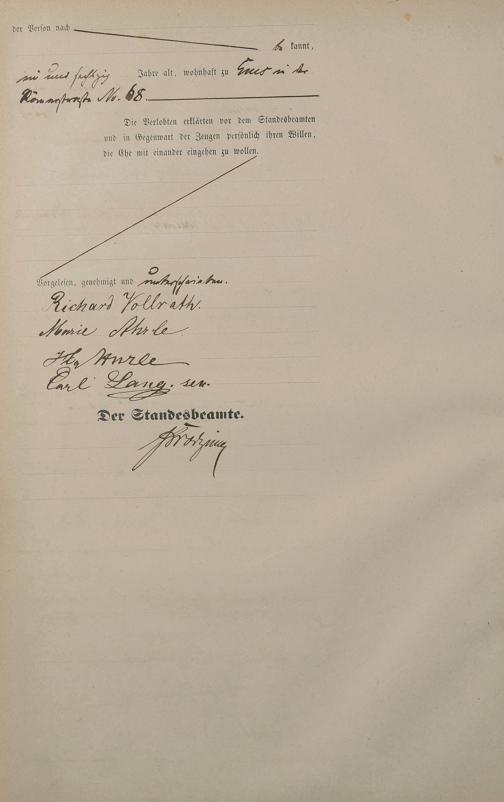 der Person nach be kannt,
und sechzig Jahre alt, wohnhaft zu Ems in der
Römerstraße No. 68.
Die Verlobten erklärten vor dem Standesbeamten
und in Gegenwart der Zeugen persönlich ihren Willen,
die Ehe mit einander eingehen zu wollen.
Vorgelesen, genehmigt und unterschrieben.
Richard Vollrath.
Marie Ahrle
Carl Lang. sen.
Der Standesbeamte.